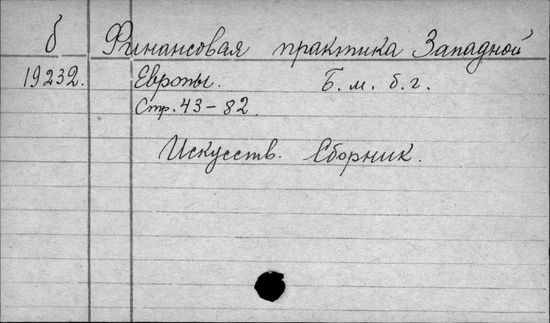 б Финансовая практика Западной
19232. Европы. Б. м. б. г.
Стр. 43-82.
Искусств. Сборник.